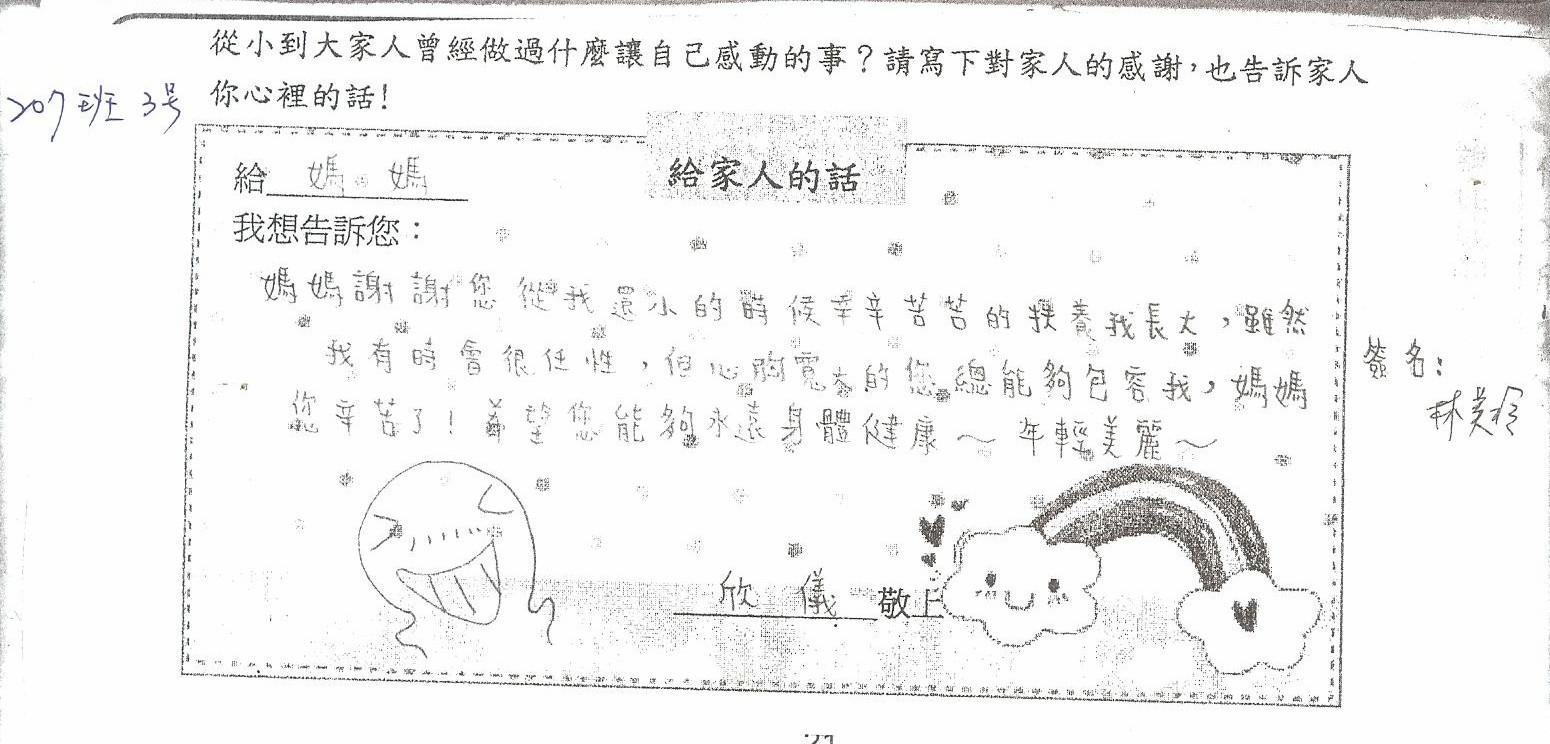 從小到大家人曾經做過什麼讓自己感動的事？請寫下對家人的感謝，也告訴家人
你心裡的話！
207班 3号
給家人的話
給 媽 媽
我想告訴您：
媽媽謝謝您從我還小的時候辛辛苦苦的扶養我長大，雖然
我有時會很任性，但心胸寬大的您總能夠包容我，媽媽
您辛苦了！希望您能夠永遠身體健康～年輕美麗～
簽名：
林美玲
欣 儀 敬上
21